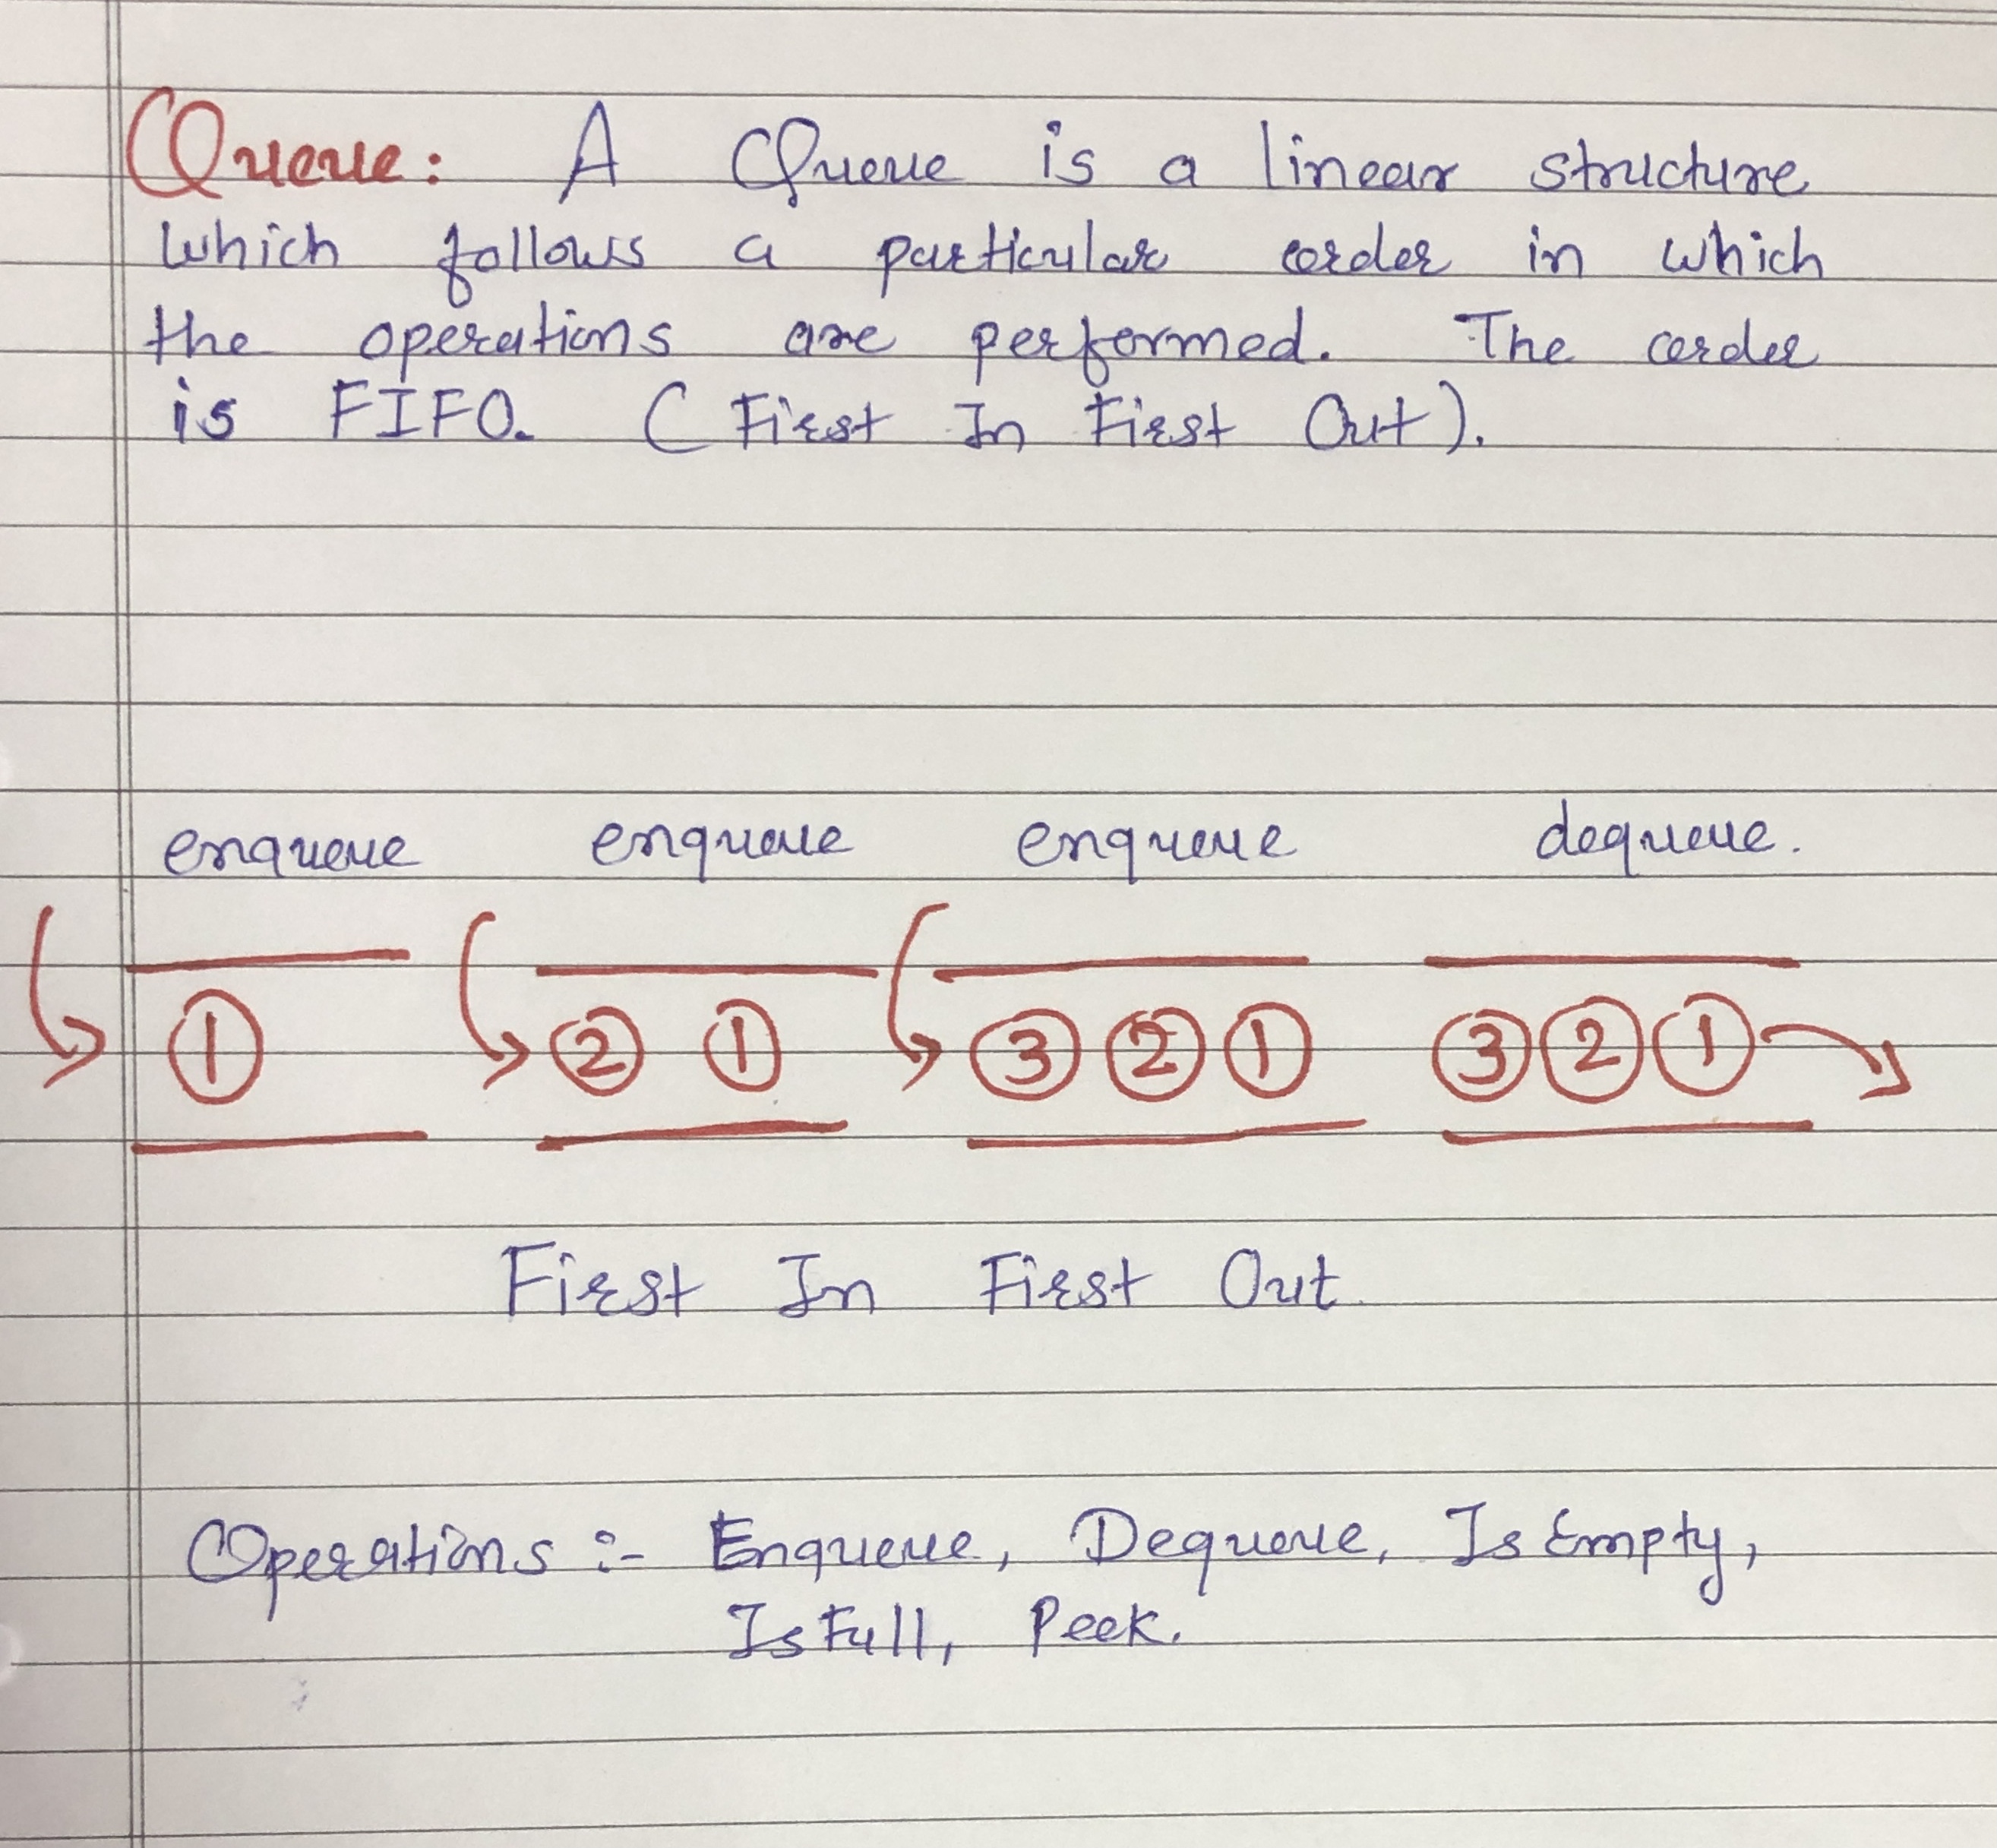 Queue: A Queue is a linear structure
which follows a particular order in which
the operations are performed. The order
is FIFO. (First In First Out).
enqueue enqueue enqueue dequeue.
1 2 1 3 2 1 3 2 1
First In First Out
Operations :- Enqueue, Dequeue, IsEmpty,
IsFull, Peek.